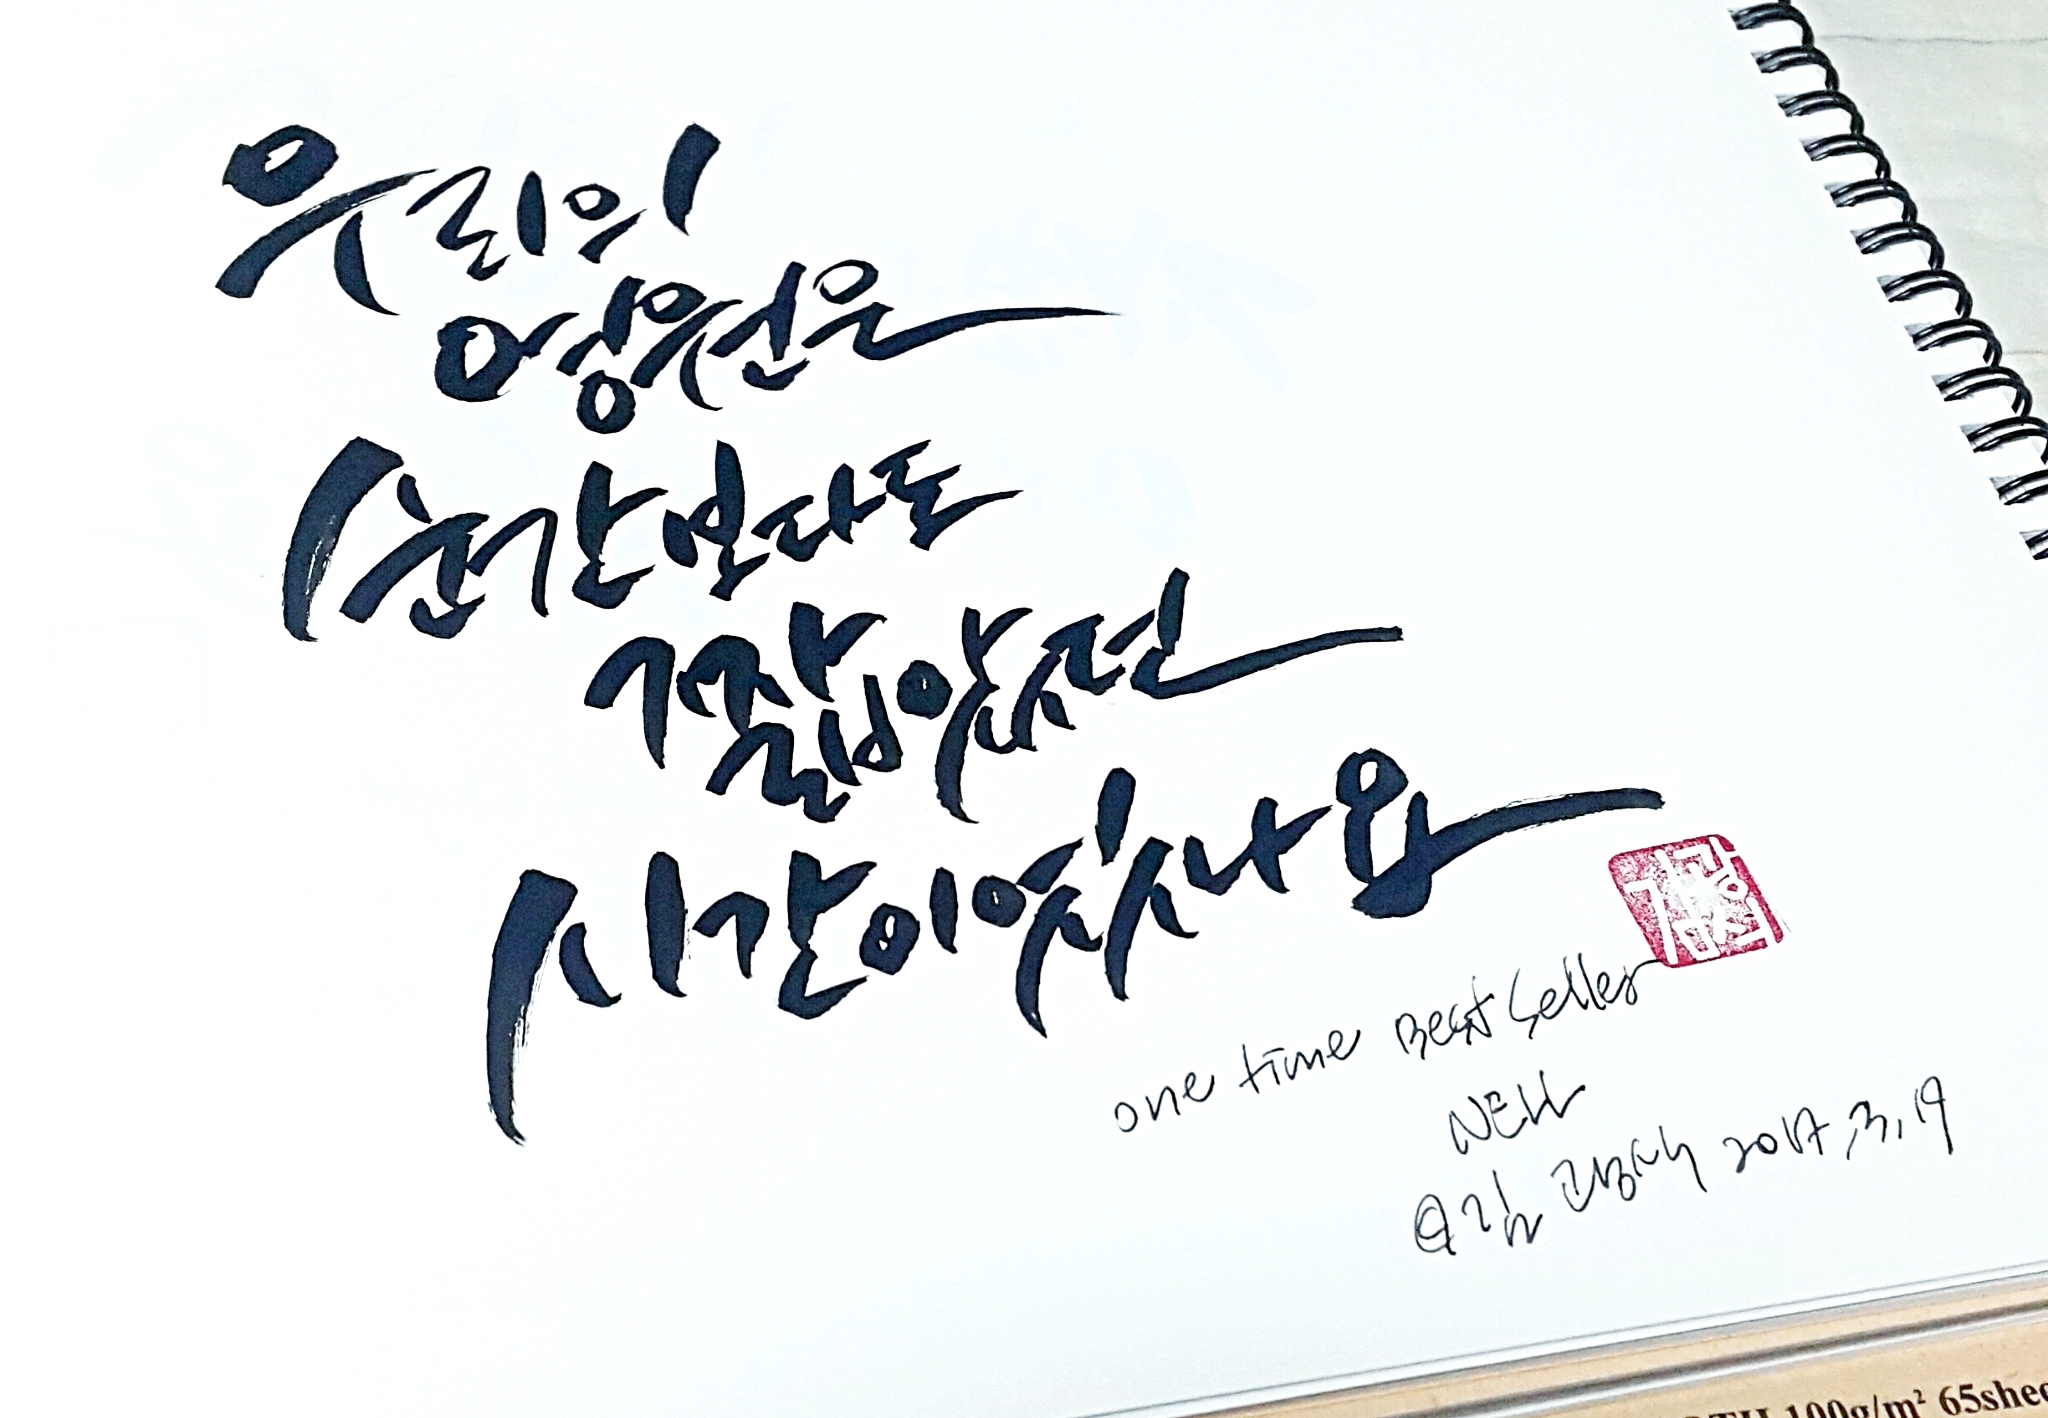 우리의
영원은
순간보다도
짧았던
시간이었나 봐
one time Best Seller
NELL
2017.3.19
100g/m² 65shee